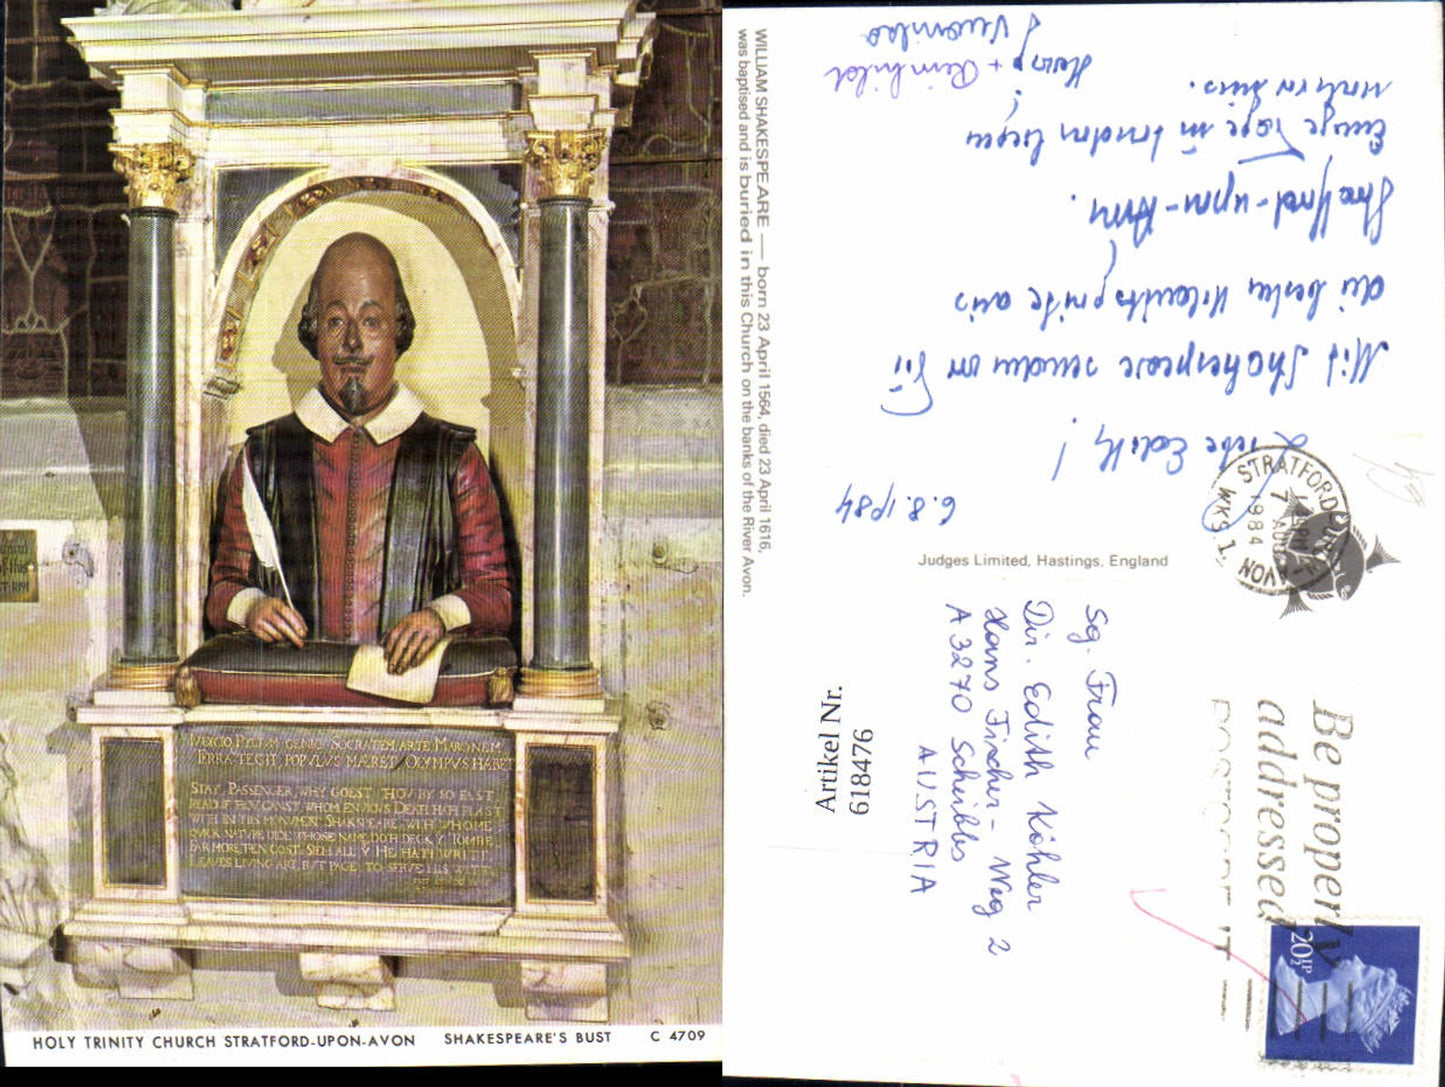 IVDICIO PYLIVM, GENIO SOCRATEM, ARTE MARONEM,
TERRA TEGIT, POPVLVS MÆRET, OLYMPVS HABET
STAY PASSENGER, WHY GOEST THOV BY SO FAST,
READ IF THOV CANST, WHOM ENVIOVS DEATH HATH PLAST
WITH IN THIS MONVMENT SHAKSPEARE: WITH WHOME
QVICK NATVRE DIDE WHOSE NAME, DOTH DECK Y TOMBE
FAR MORE, THEN COST: SIEH ALL, Y HE HATH WRITT,
LEAVES LIVING ART, BVT PAGE, TO SERVE HIS WITT.
HOLY TRINITY CHURCH STRATFORD-UPON-AVON SHAKESPEARE'S BUST C 4709
WILLIAM SHAKESPEARE — born 23 April 1564, died 23 April 1616,
was baptised and is buried in this Church on the banks of the River Avon.
6.8.1984
Liebe Edith!
Mit Shakespeare senden wir Dir
die besten Urlaubsgrüße aus
Stratford-upon-Avon.
Einige Tage in London liegen
hinter uns.
+ Reinhild
Veronika
Judges Limited, Hastings, England
STRATFORD UPON AVON
7 AUG
1984
Be properly
addressed
POSTCODE IT
20½P
Sg. Frau
Dir. Edith Köhler
Hans Fischer-Weg 2
A 3270 Scheibbs
AUSTRIA
Artikel Nr.
618476